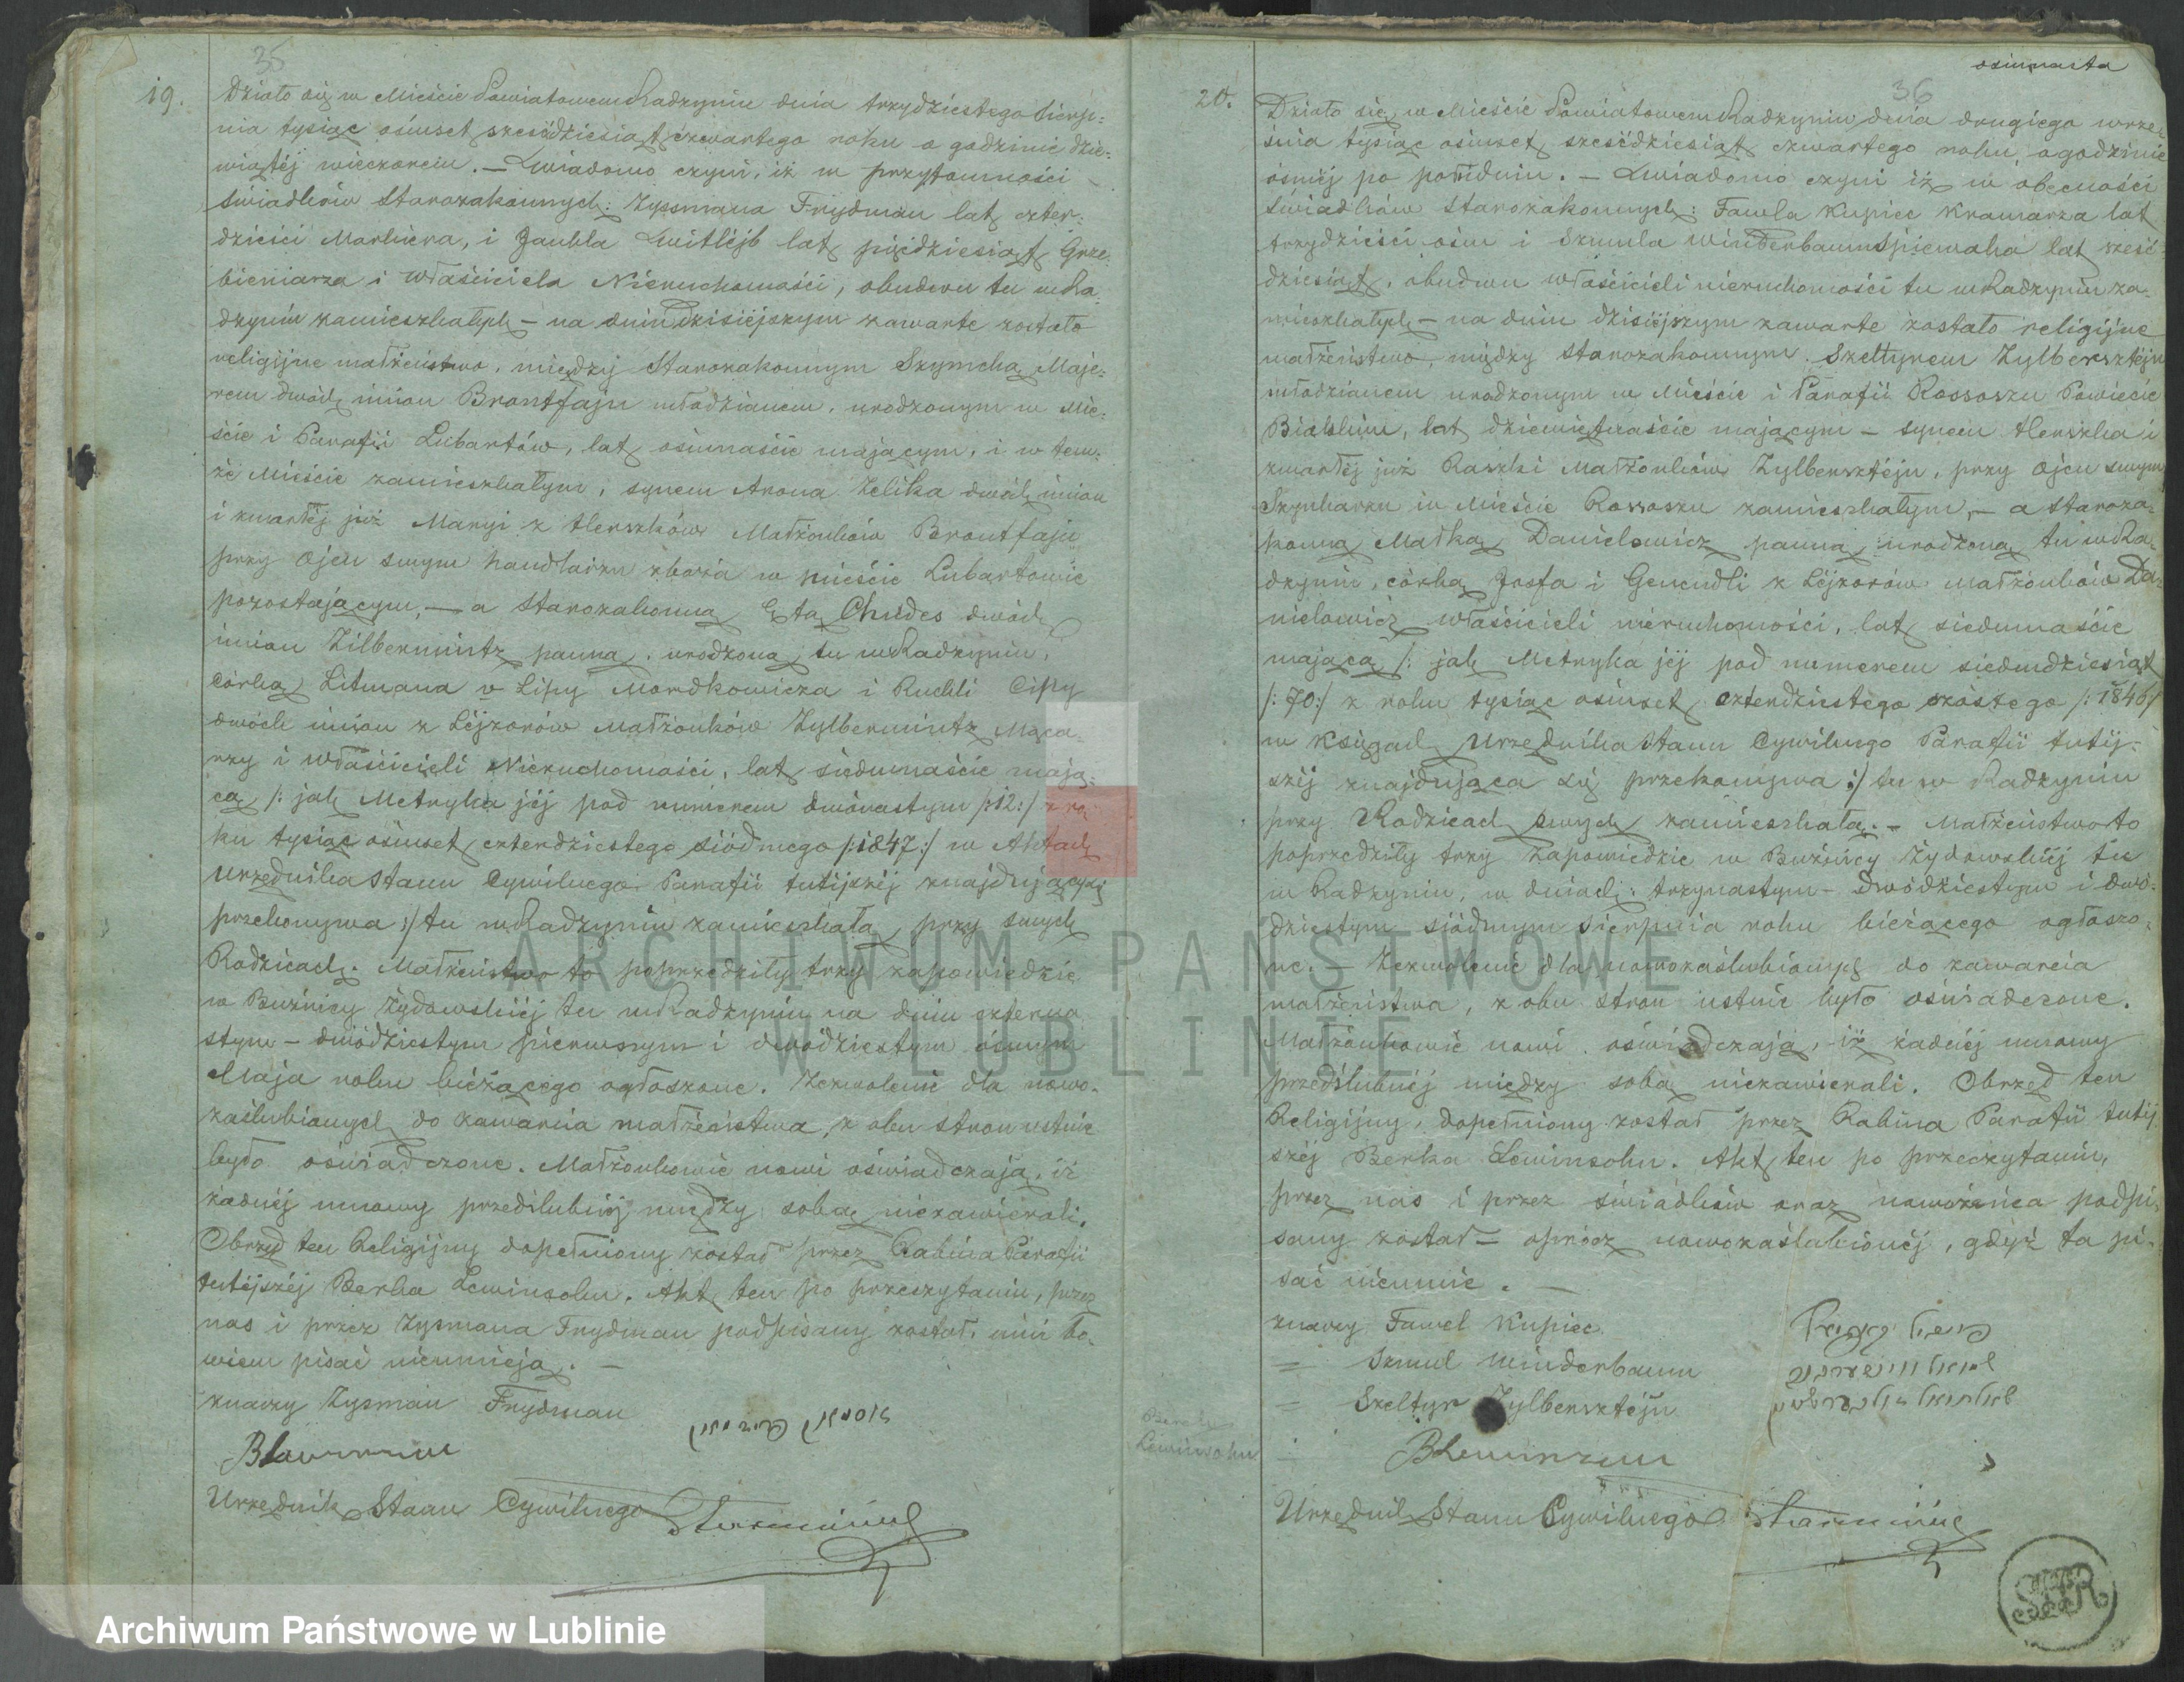 35
19.
Działo się w Mieście Powiatowem Radzyniu dnia trzydziestego Sierp:
nia tysiąc ośmset sześćdziesiąt czwartego roku o godzinie dzie:
wiątéj wieczorem. — Wiadomo czyni, iż w przytomności
świadków Starozakonnych: Zyssmana Frydman lat czter:
dzieści Markiera, i Jankla Kwitlejb lat pięćdziesiąt Grze:
bieniarza i Właściciela Nieruchomości, obudwu tu w Ra:
dzyniu zamieszkałych — na dniu Dzisiéjszym zawarte zostało
religijne małżeństwo, między Starozakonnym Szymchą Maje:
rem dwóch imion Brontfajn młodzianem, urodzonym w Mie:
ście i Parafii Lubartów, lat ośmnaście mającym, i w tem:
że Mieście zamieszkałym, synem Arona Zelika dwóch imion
i zmarłéj już Maryi z Herszków Małżonków Brontfajn
przy Ojcu swym handlarzu zboża w mieście Lubartowie
pozostającym, — a Starozakonną Etą Chudes dwóch
imion Zilbermintz panną, urodzoną tu w Radzyniu,
Córką Litmana v Lipy Mordkowicza i Ruchli Cipy
dwóch imion z Lejzorów Małżonków Zylbermintz Mąca:
rzy i Właścicieli Nieruchomości, lat siedmnaście mają:
cą /: jak Metryka jéj pod numerem dwónastym /:12:/ z ro:
ku tysiąc ośmset czterdziestego siódmego /:1847:/ w Aktach
Urzędnika Stanu Cywilnego Parafii tutéjszéj znajdująca się
przekonywa :/ tu w Radzyniu zamieszkałą przy swych
Rodzicach. Małżeństwo to poprzedziły trzy zapowiedzie
w Bużnicy Żydowskiéj tu w Radzyniu na dniu czterna:
stym — dwódziestym pierwszym i dwódziestym ósmym
Maja roku bieżącego ogłoszone. Zezwolenie dla nowo:
zaślubionych do zawarcia małżeństwa, z obu stron ustnie
było oświadczone. Małżonkowie nowi oświadczają, iż
żadnéj umowy przedślubnéj między sobą niezawierali.
Obrzęd ten Religijny dopełniony został przez Rabina Parafii
tutéjszéj Berka Lewinsohn. Akt ten po przeczytaniu, przez
nas i przez Zysmana Frydman podpisany został, inni bo:
wiem pisać nieumieją. —
znaczy Zysman Frydman
BLewinson
Urzędnik Stanu Cywilnego
ośmnasta
36
20.
Działo się w Mieście Powiatowem Radzyniu dnia drugiego wrze:
śnia tysiąc ośmset sześćdziesiąt czwartego roku, o godzinie
ósméj po południu. — Wiadomo czyni iż w obecności
świadków Starozakonnych: Fawla Kupiec Kramarza lat
trzydzieści ośm i Szmula Winderbaum Śpiewaka lat sześć:
dziesiąt, obudwu właścicieli nieruchomości tu w Radzyniu za:
mieszkałych — na dniu dzisiéjszym zawarte zostało religijne
małżeństwo, między Starozakonnym Szeltynem Zylbersztéjn
młodzianem urodzonym w Mieście i Parafii Rossoszu Powiecie
Bialskim, lat dziewiętnaście mającym — synem Herszka i
zmarłéj już Raszki Małżonków Zylbersztéjn, przy Ojcu swym
Szynkarzu w Mieście Rossoszu zamieszkałym, — a Staroza:
konną Małką Danielowicz panną, urodzoną tu w Ra:
dzyniu, córką Josfa i Genendli z Lejzorów Małżonków Da:
nielowicz właścicieli nieruchomości, lat siedmnaście
mającą /: jak Metryka jéj pod numerem siedmdziesiąt
/:70:/ z roku tysiąc ośmset czterdziestego szóstego /:1846:/
w Księgach Urzędnika Stanu Cywilnego Parafii tutéj:
széj znajdująca się przekonywa :/ tu w Radzyniu
przy Rodzicach swych zamieszkałą. — Małżeństwo to
poprzedziły trzy Zapowiedzie w Bużnicy Żydowskiéj tu
w Radzyniu, w dniach: trzynastym — Dwódziestym i dwó:
dziestym siódmym Sierpnia roku bieżącego ogłoszo:
ne. — Zezwolenie dla nowozaślubionych do zawarcia
małżeństwa, z obu stron ustnie było oświadczone.
Małżonkowie nowi oświadczają, iż żadnéj umowy
przedślubnéj między sobą niezawierali. Obrzęd ten
Religijny, dopełniony został przez Rabina Parafii tutéj:
széj Berka Lewinsohn. Akt ten po przeczytaniu,
przez nas i przez świadków oraz nowożeńca podpi:
sany został — oprócz nowozaślubionéj, gdyż ta pi:
sać nieumie. —
znaczy Fawel Kupiec
= Szmul Winderbaum
= Szeltyn Zylbersztéjn
Berek
Lewinsohn
BLewinson
Urzędnik Stanu Cywilnego
ARCHIWUM PAŃSTWOWE
W LUBLINIE
Archiwum Państwowe w Lublinie